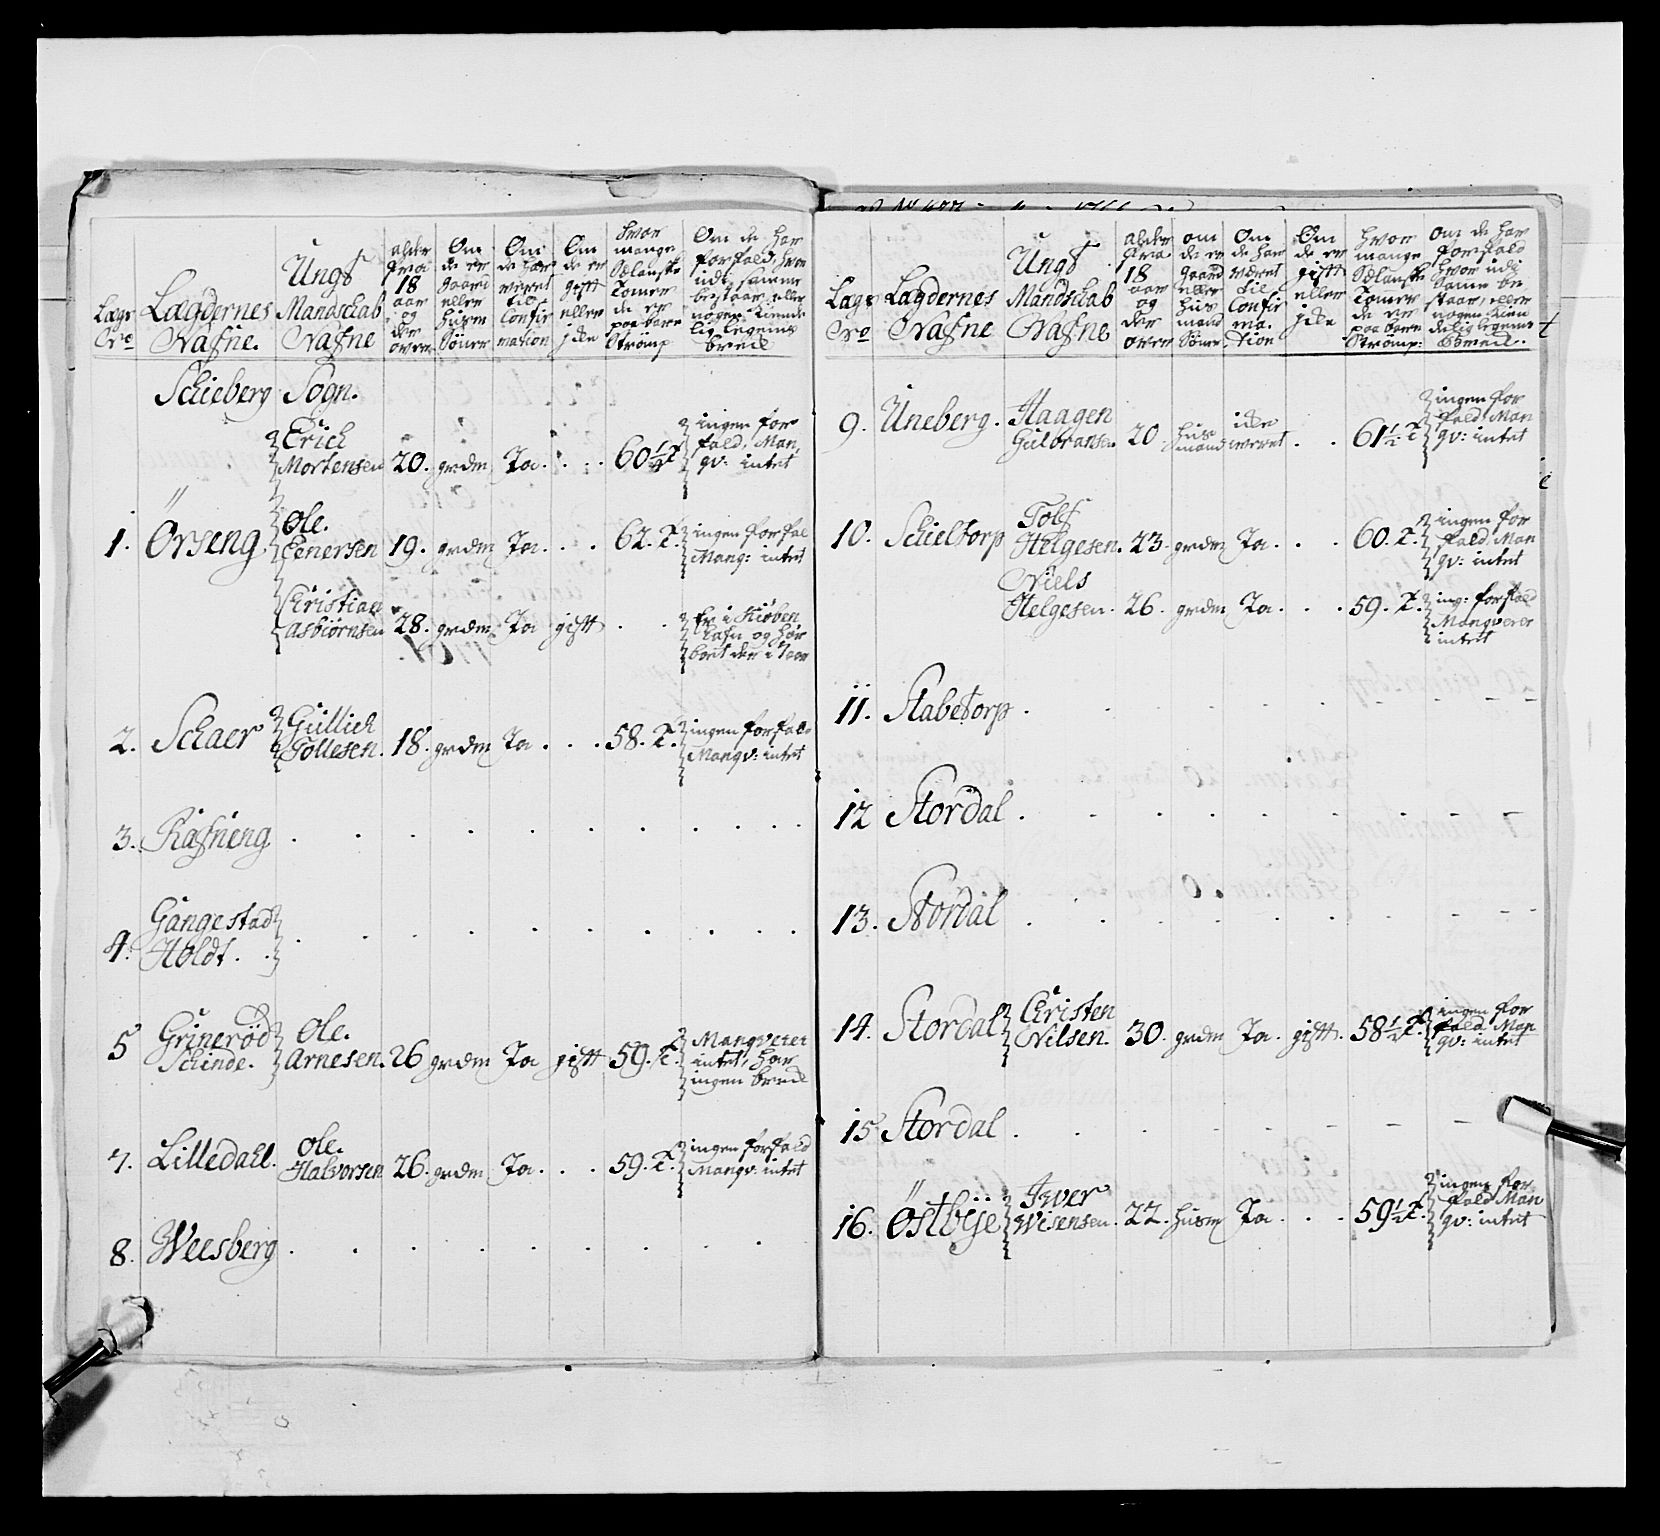 Lægs No
Lægdernes Nafne.
Ungt Mandschab Nafne
alder fra 18 aar og der over
Om de er gaard eller husm Sönner
Om de har været til Confirmation
Om de er gift eller jcke
Hvor mange Siælanske Tomer de er paa bare Strömp
Om de har forfald, hvor udj samme bestaar, eller nogen kiendelig Legems bræk
Schieberg Sogn.
Erich Mortensen 20. grdm Ja. . . 60½ T ingen forfald, Manqv: intet
1. Örseng Ole. Eenersen 19. grdm Ja. . . 62. T. ingen forfal Manq: intet
Christian Asbiörnsen 28. grdm Ja gift . . Er i Kiöbenhafn og har boet der i 7 aar
2. Schaer Gullich Tollesen. 18. grdm Ja . . . 58. T. ingen forfald Manqv: intet
3. Rafneng . . . . . . . .
4. Gangestad Holdt . . . . . . . .
5 Grinerød Schinde. Ole. Arnesen. 26 grdm Ja gift 59. T. Manqverer intet, har ingen bræk
7. Lilledahl. Ole. Halvorsen 26. grdm Ja. . . 59. T. ingen forfald Manqv: intet
8. Weesberg . . . . . . . .
Lægs No
Lægdernes Nafne
Ungt Mandschab Nafne
alder fra 18 aar og der over
om de er gaard eller hus mand Sönner.
Om de har været til Confirmation
Om de er gift eller jcke
hvor mange Siælanske Tomer de er paa bare Strömp:
Om de har forfald hvor udi Samme bestaar, eller nogen kiendelig legems bræk.
9. Uneberg. Haagen Gulbransen 20. husmand icke været . . 61½ T ingen forfald, Manqv: intet
10. Schieltorp Tolf Helgesen. 23. grdm Ja. . . 60. T. ingen forfald, Manqv: intet
Niels Helgesen. 26. grdm Ja. . . 59. T. ing: forfald Manqverer intet
11. Stabetorp . . . . . . . .
12 Stordal . . . . . . . .
13. Stordal . . . . . . . .
14. Stordal Christen Nilsen. 30. grdm Ja. gift. 58½ T. ingen forfald, Manqv: intet
15 Stordal . . . . . . . .
16. Östbÿe Iver 22. husm Ja. . . 59½ T. ingen forfald Manqv: intet